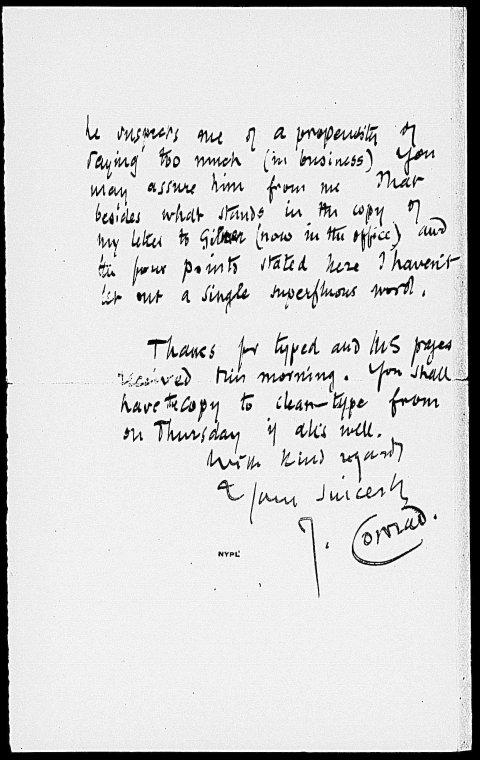 he suspects me of a propensity of
saying too much (in business) You
may assure him from me that
besides what stands in the copy of
my letter to (now in the office) and
the four points stated here I haven't
let out a single superfluous word.
Thanks for typed and MS pages
received this morning. You shall
have the copy to clean-type from
on Thursday if all's well.
With kind regards
Yours sincerely
J. Conrad.
NYPL